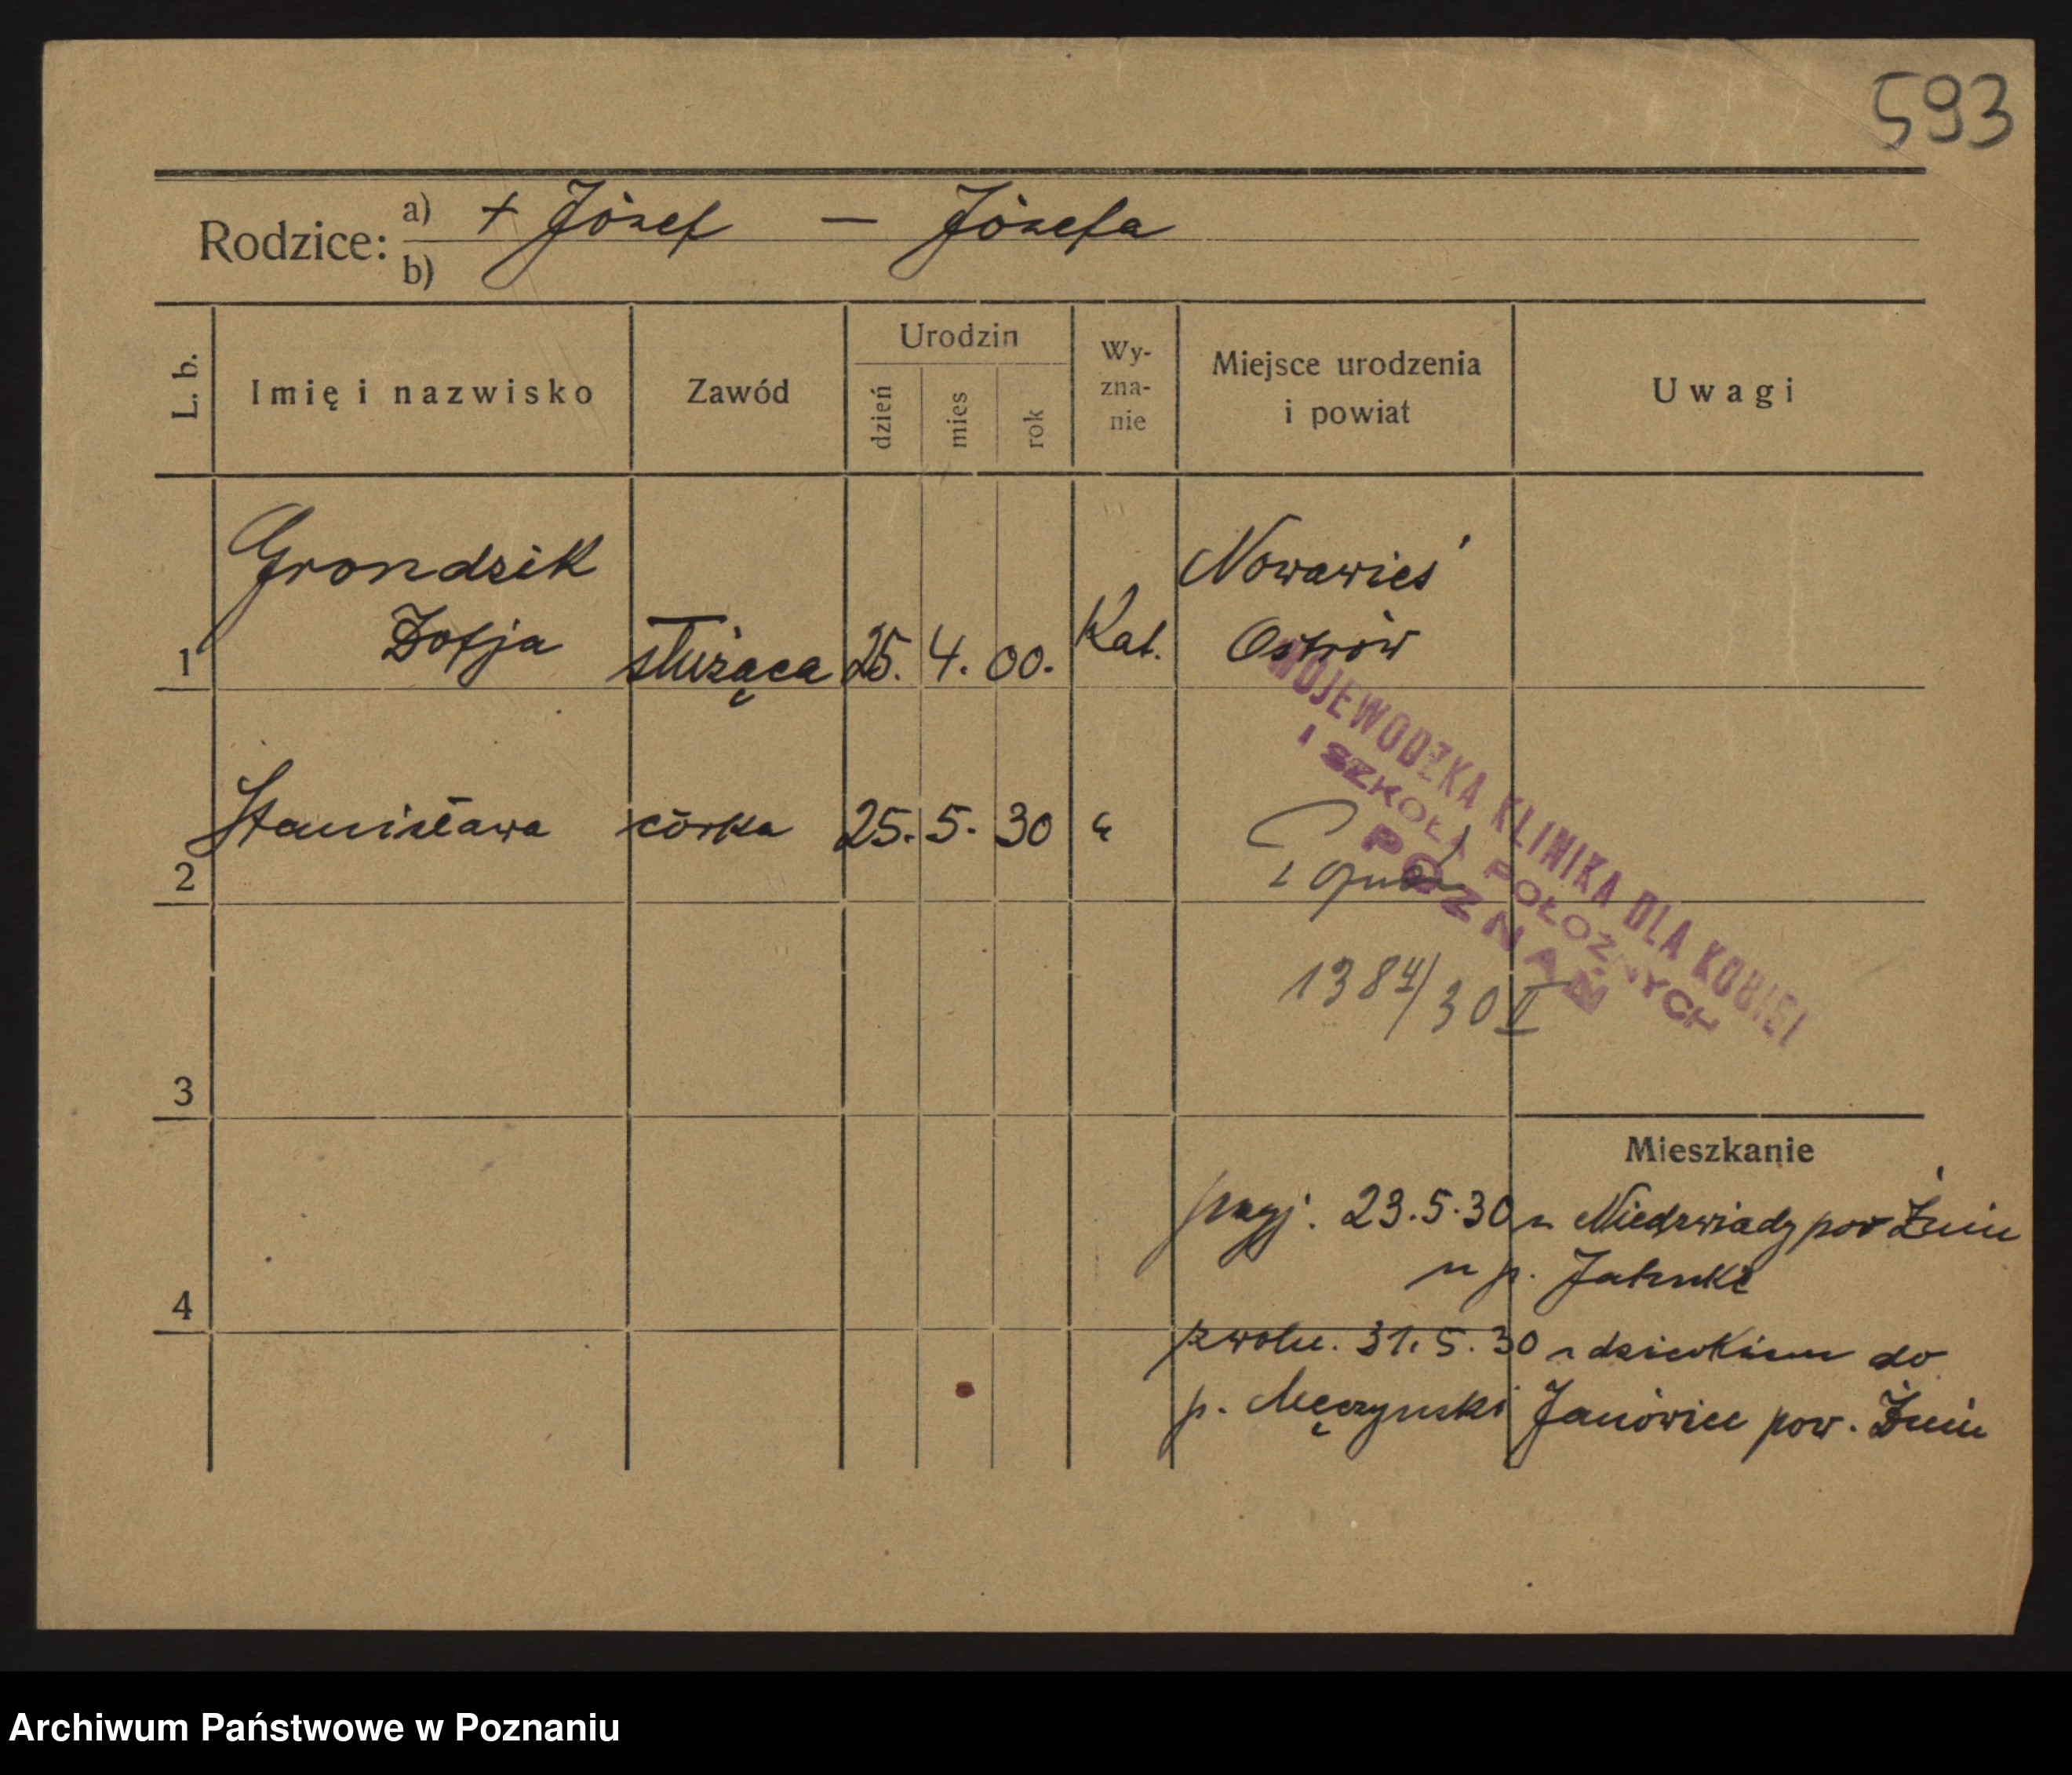 593
Rodzice: a) + Józef — Józefa
b)
L. b. Imię i nazwisko Zawód Urodzin dzień mies rok Wy-zna-nie Miejsce urodzenia i powiat Uwagi
Grondzik Nowawieś
1 Zofja służąca 25. 4. 00. Kat. Ostrów
WOJEWODZKA KLINIKA DLA KOBIET
I SZKOŁA POŁOŻNYCH
POZNAŃ
2 Stanisława córka 25. 5. 30 "
1384/30 II
3
Mieszkanie
przyj. 23.5.30 z Niedzwiady pow Żnin
u p.
4
zwoln. 31.5.30 z dzieckiem do
p. Męczynski Janówiec pow. Żnin
Archiwum Państwowe w Poznaniu